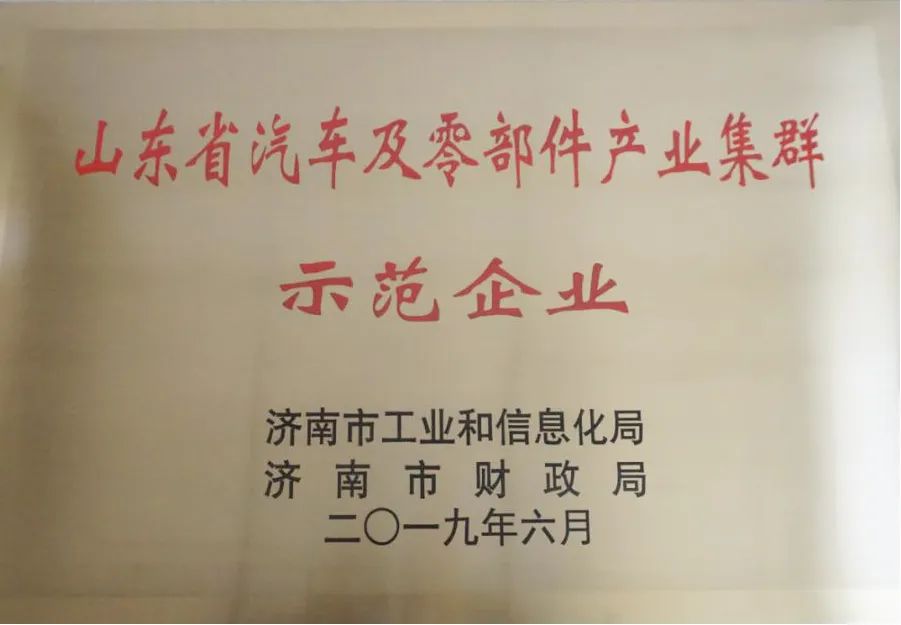 山东省汽车及零部件产业集群
示范企业
济南市工业和信息化局
济南市财政局
二〇一九年六月